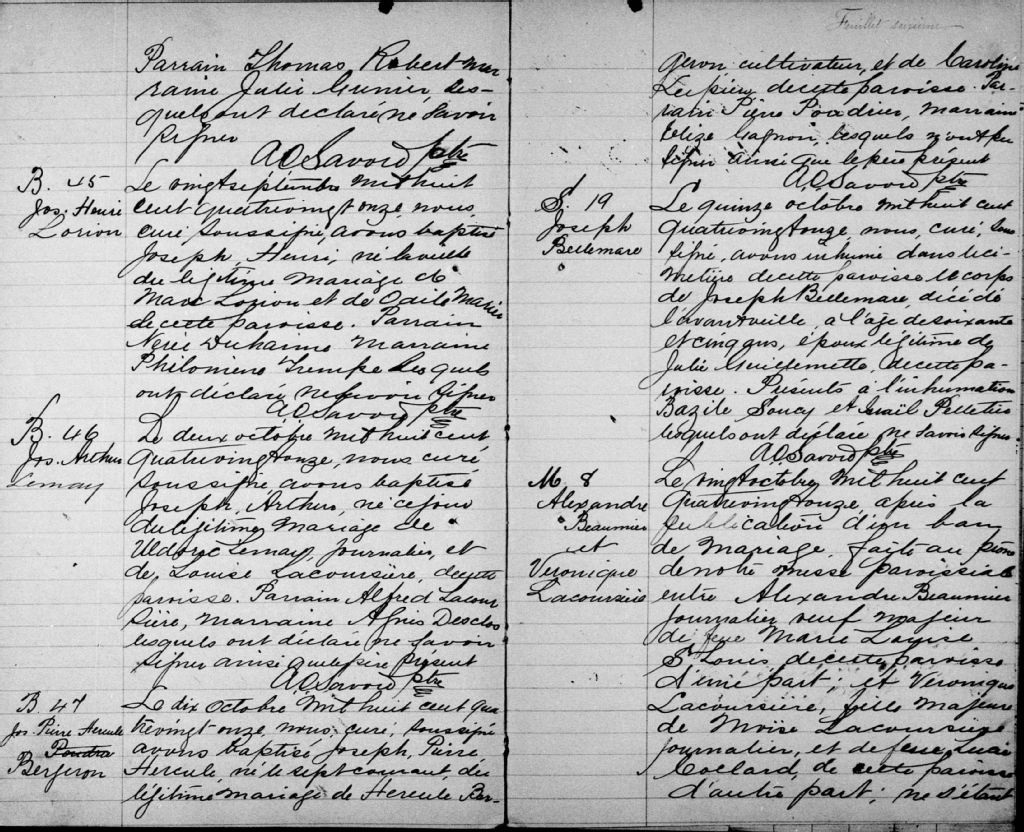 Parrain Thomas Robert mar-
raine Julie Grenier, les-
quels ont déclaré ne savoir
signer
A.O. Savoid ptre
B. 45
Jos. Henri
Lorion
Le vingt septembre mil huit
cent quatrevingt onze, nous,
curé soussigné, avons baptisé
Joseph, Henri, né la veille
du légitime mariage de
Marc Lorion et de Odile
de cette paroisse. Parrain
Nérée Duhaime Marraine
Philomène Trempe lesquels
ont déclaré ne savoir signer
A.O. Savoid ptre
B. 46
Jos. Arthur
Lemay
Le deux octobre mil huit cent
quatrevingt onze, nous curé
soussigné avons baptisé
Joseph, Arthur, né ce jour
du légitime mariage de
Uldoric Lemay, journalier, et
de Louise Lacoursière, de cette
paroisse. Parrain Alfred Lacour
sière, marraine Agnès Desclos
lesquels ont déclaré ne savoir
signer ainsi que le père présent
A.O. Savoid ptre
B. 47
Jos Pierre Hercule
Poudra
Bergeron
Le dix octobre mil huit cent qua
trevingt onze, nous, curé, soussigné
avons baptisé Joseph, Pierre
Hercule, né le sept courant, du
légitime mariage de Hercule Ber-
Feuillet
geron cultivateur, et de Caroline
de cette paroisse. Par-
rain Pierre Poudrier, marraine
Elize Gagnon, lesquels n'ont pu
signer ainsi que le père présent
A.O. Savoid ptre
S. 19
Joseph
Bellemare
Le quinze octobre mil huit cent
quatrevingt onze nous, curé, sous
signé, avons inhumé dans le ci-
metière de cette paroisse le corps
de Joseph Bellemare, décédé
l'avant veille, à l'age de soixante
et cinq ans, époux légitime de
Julie Guillemette, de cette pa-
roisse. Présents à l'inhumation
Bazile Soucy et Pelletier
lesquels ont déclaré ne savoir signer
A.O. Savoid ptre
M. 8
Alexandre
Beaumier
et
Veronique
Lacoursière
Le vingt octobre mil huit cent
quatrevingt onze, après la
publication d'un ban
de mariage, faite au prône
de notre messe paroissiale
entre Alexandre Beaumier
journalier veuf majeur
de feue Marie Louise
St Louis, de cette paroisse
d'une part; et Véronique
Lacoursière, fille majeure
de Moïse Lacoursière
journalier, et de feue Lucie
Collard, de cette paroisse
d'autre part; ne s'étant